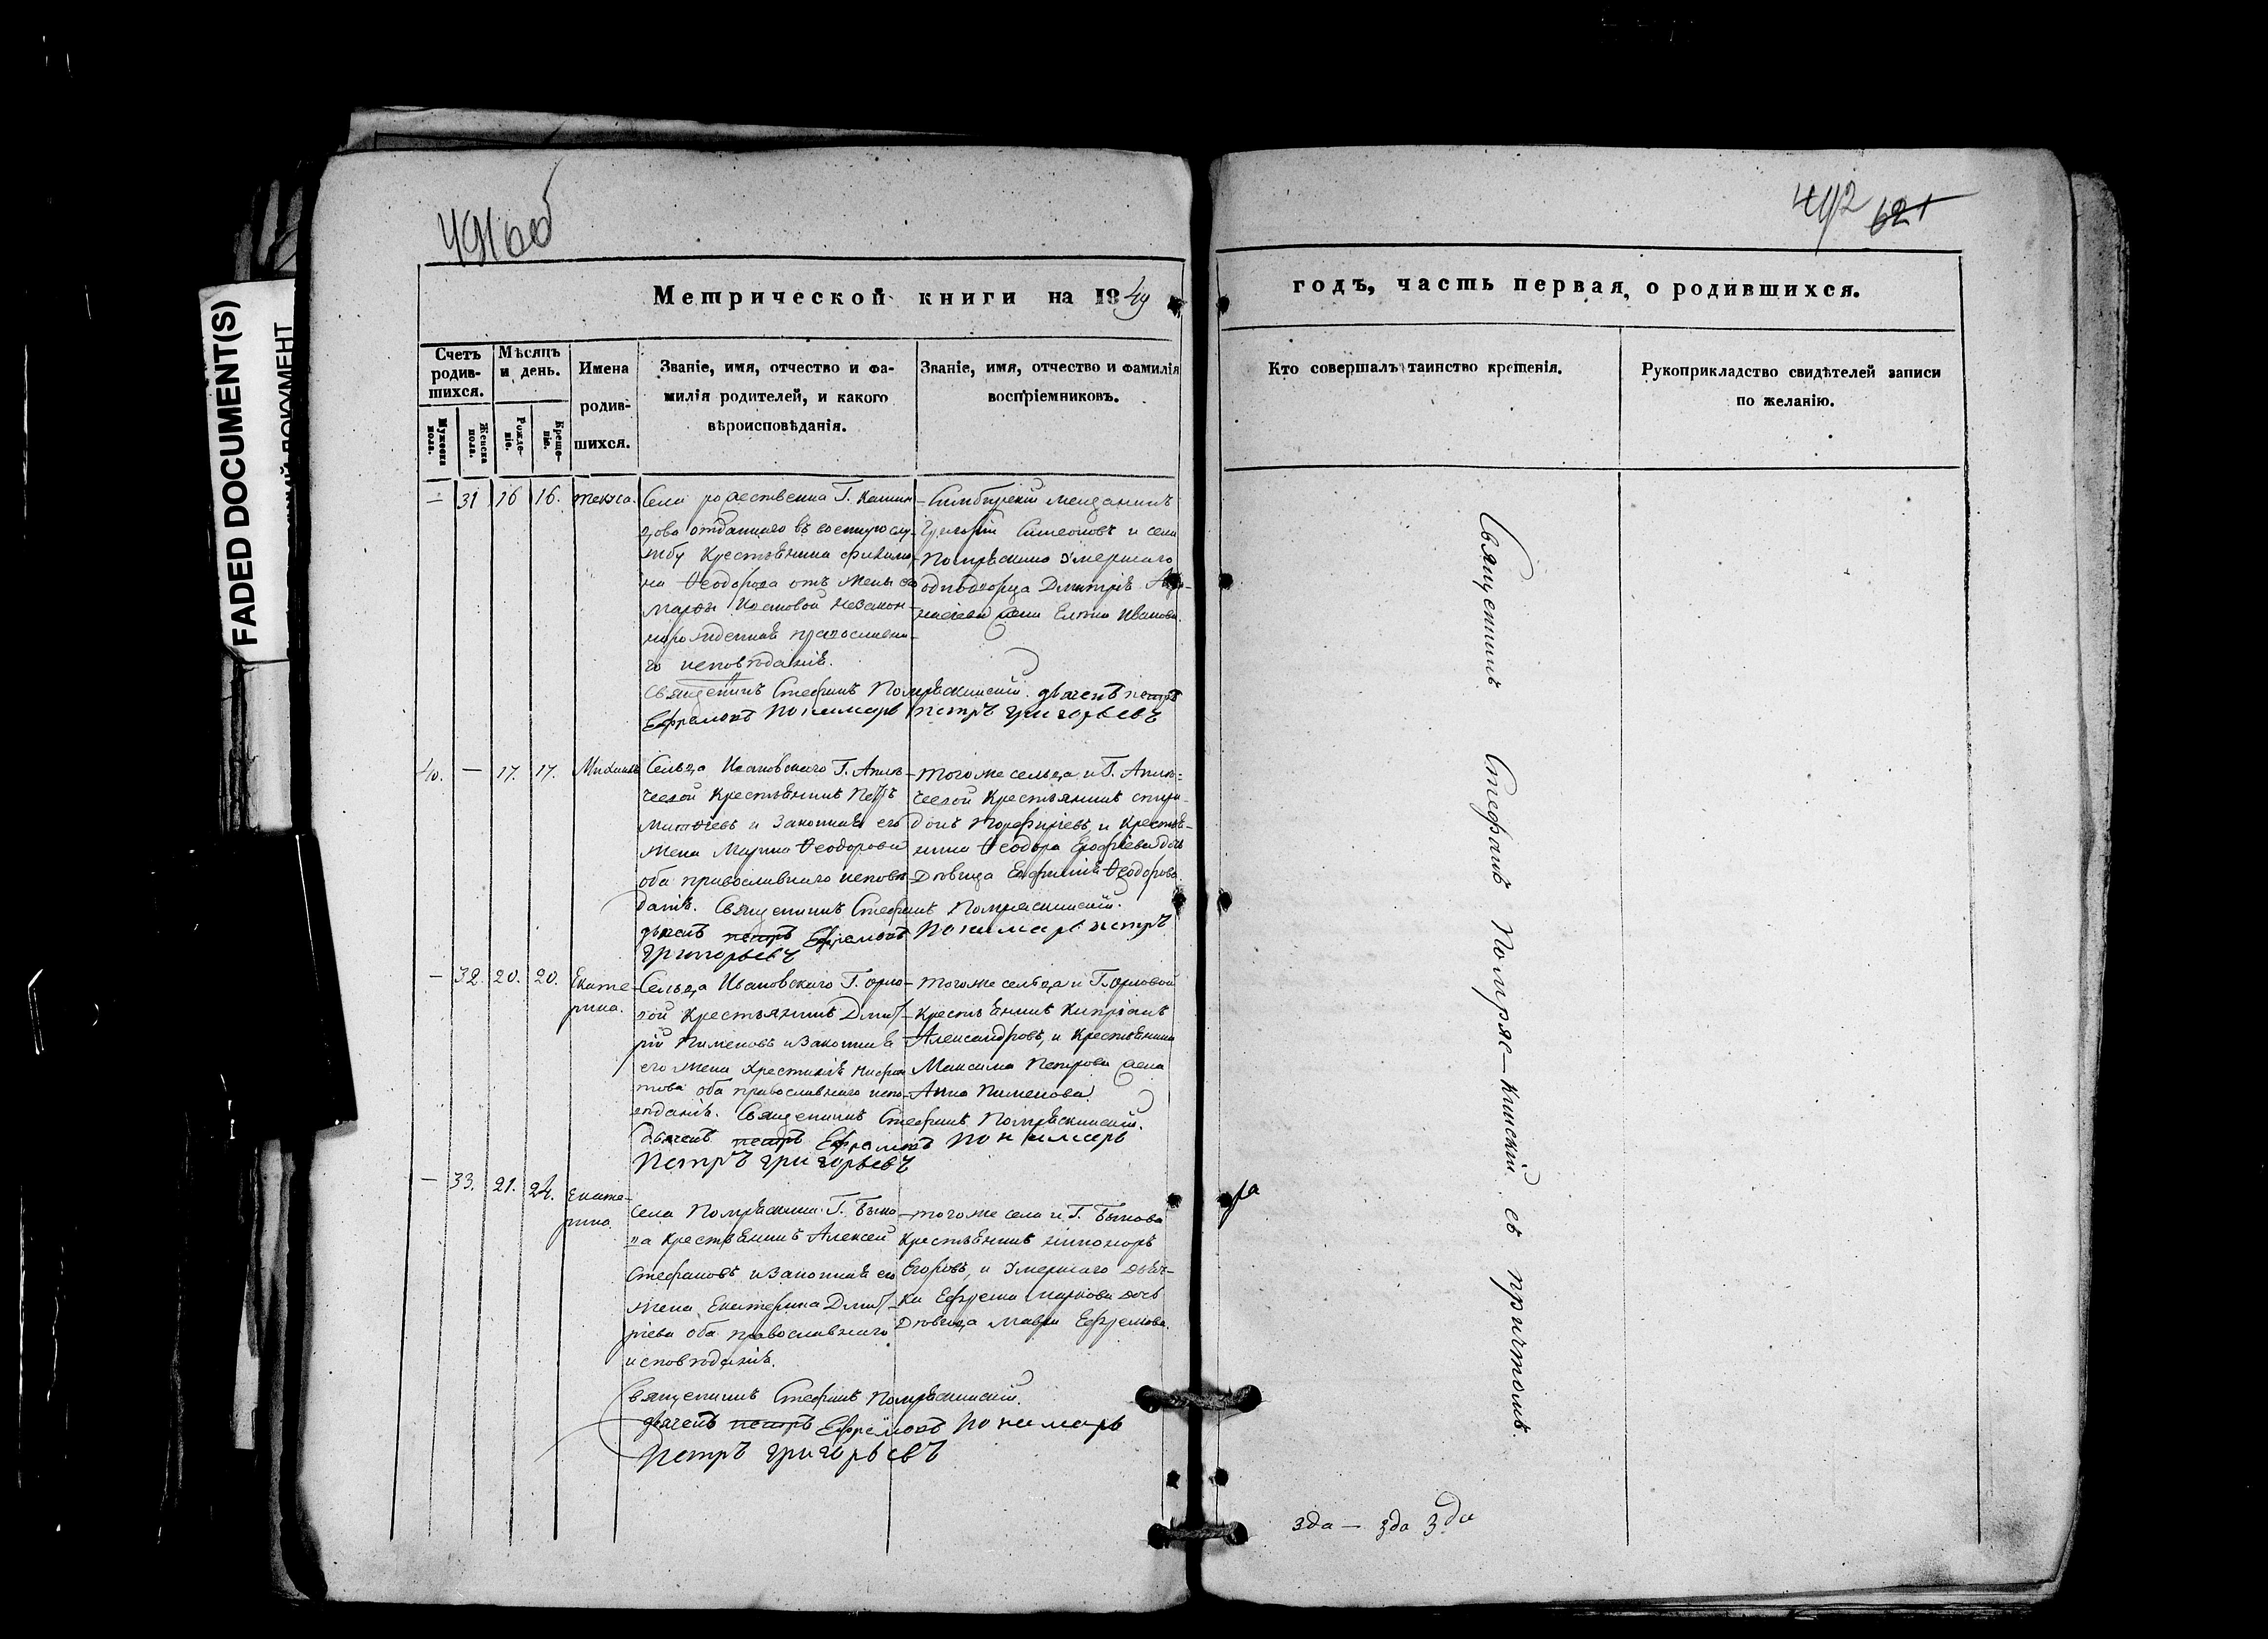 491 об
492 621
FADED DOCUMENT(S)
Метрической книги на 1849
годъ, часть первая, о родившихся.
Счетъ родив-шихся.
Мужеска пола.
Женска пола.
Мѣсяцъ и день.
Рожде-ніе.
Креще-ніе.
Имена
родив-
шихся.
Званіе, имя, отчество и фа-
милія родителей, и какого
вѣроисповѣданія.
Званіе, имя, отчество и фамилія
воспріемниковъ.
Кто совершалъ таинство крещенія.
Рукоприкладство свидѣтелей записи
по желанію.
— 31 16 16.
Села Г.
отданнаго въ военную слу-
жбу Крестьянина
на Ѳеодорова отъ жены его
Марѳы Ивановой незакон-
норожденная православна-
го исповѣданія.
Священникъ Стефанъ Помряскинскій. дьячекъ петръ
Ефремовъ Пономарь петръ григорьевъ
Симбирскій мещанинъ
Григорій Симеоновъ и села
Помряскина Умершаго
однодворца Дмитрія
жена Елена Иванова.
40. — 17. 17. Михаилъ
Сельца Ивановскаго Г.
Крестьянинъ Петръ
и Законная его
жена Марина Ѳеодорова
оба православнаго исповѣ-
данія. Священникъ Стефанъ Помряскинскій.
дьячекъ петръ Ефремовъ Пономарь петръ
григорьевъ
Того же сельца и Г.
Крестьянинъ Спири-
донъ Порфирьевъ, и Крестья-
нина Ѳеодора Ерофѣева дочь
Дѣвица Евфимія Ѳеодорова.
— 32. 20. 20. Екате-
рина.
Сельца Ивановскаго Г. Орло-
вой Крестьянинъ Дмит-
рій Пименовъ и Законная
его жена Крестинія
това оба православнаго испо-
вѣданія. Священникъ Стефанъ Помряскинскій.
Дьячекъ петръ Ефремовъ Пономарь
Петръ григорьевъ
того же сельца и Г. Орловой
Крестьянинъ Кипріанъ
Александровъ, и Крестьянина
Максима Петрова жена
Анна Пименова.
— 33. 21. 24. Екате-
рина
Села Помряскина Г. Быко-
ва Крестьянинъ Алексей
Стефановъ и Законная его
жена Екатерина Дмит-
ріева оба православнаго
исповѣданія.
Священникъ Стефанъ Помряскинскій.
дьячекъ петръ Ефремовъ Пономарь
Петръ григорьевъ
того же села и Г. Быкова
Крестьянинъ
Егоровъ, и Умершаго дьяч-
ка Ефрема Маркова дочь
Дѣвица Мавра Ефремова.
Священникъ Стефанъ Помряс-кинскій съ причтомъ.